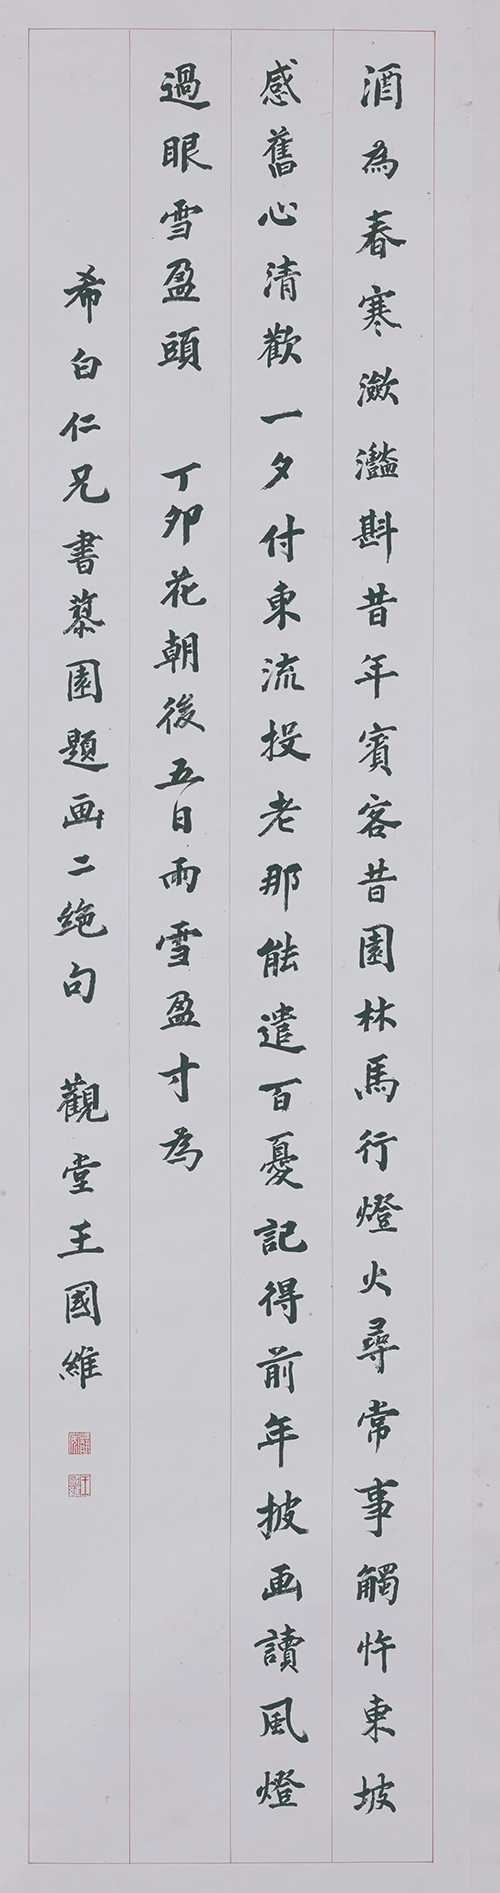 酒為春寒潋灩斟昔年賓客昔園林馬行燈火尋常事觸忤東坡
感舊心清歡一夕付東流投老那能遣百憂記得前年披画讀風燈
過眼雪盈頭 丁卯花朝後五日雨雪盈寸為
希白仁兄書摹園題画二絶句 觀堂王國維